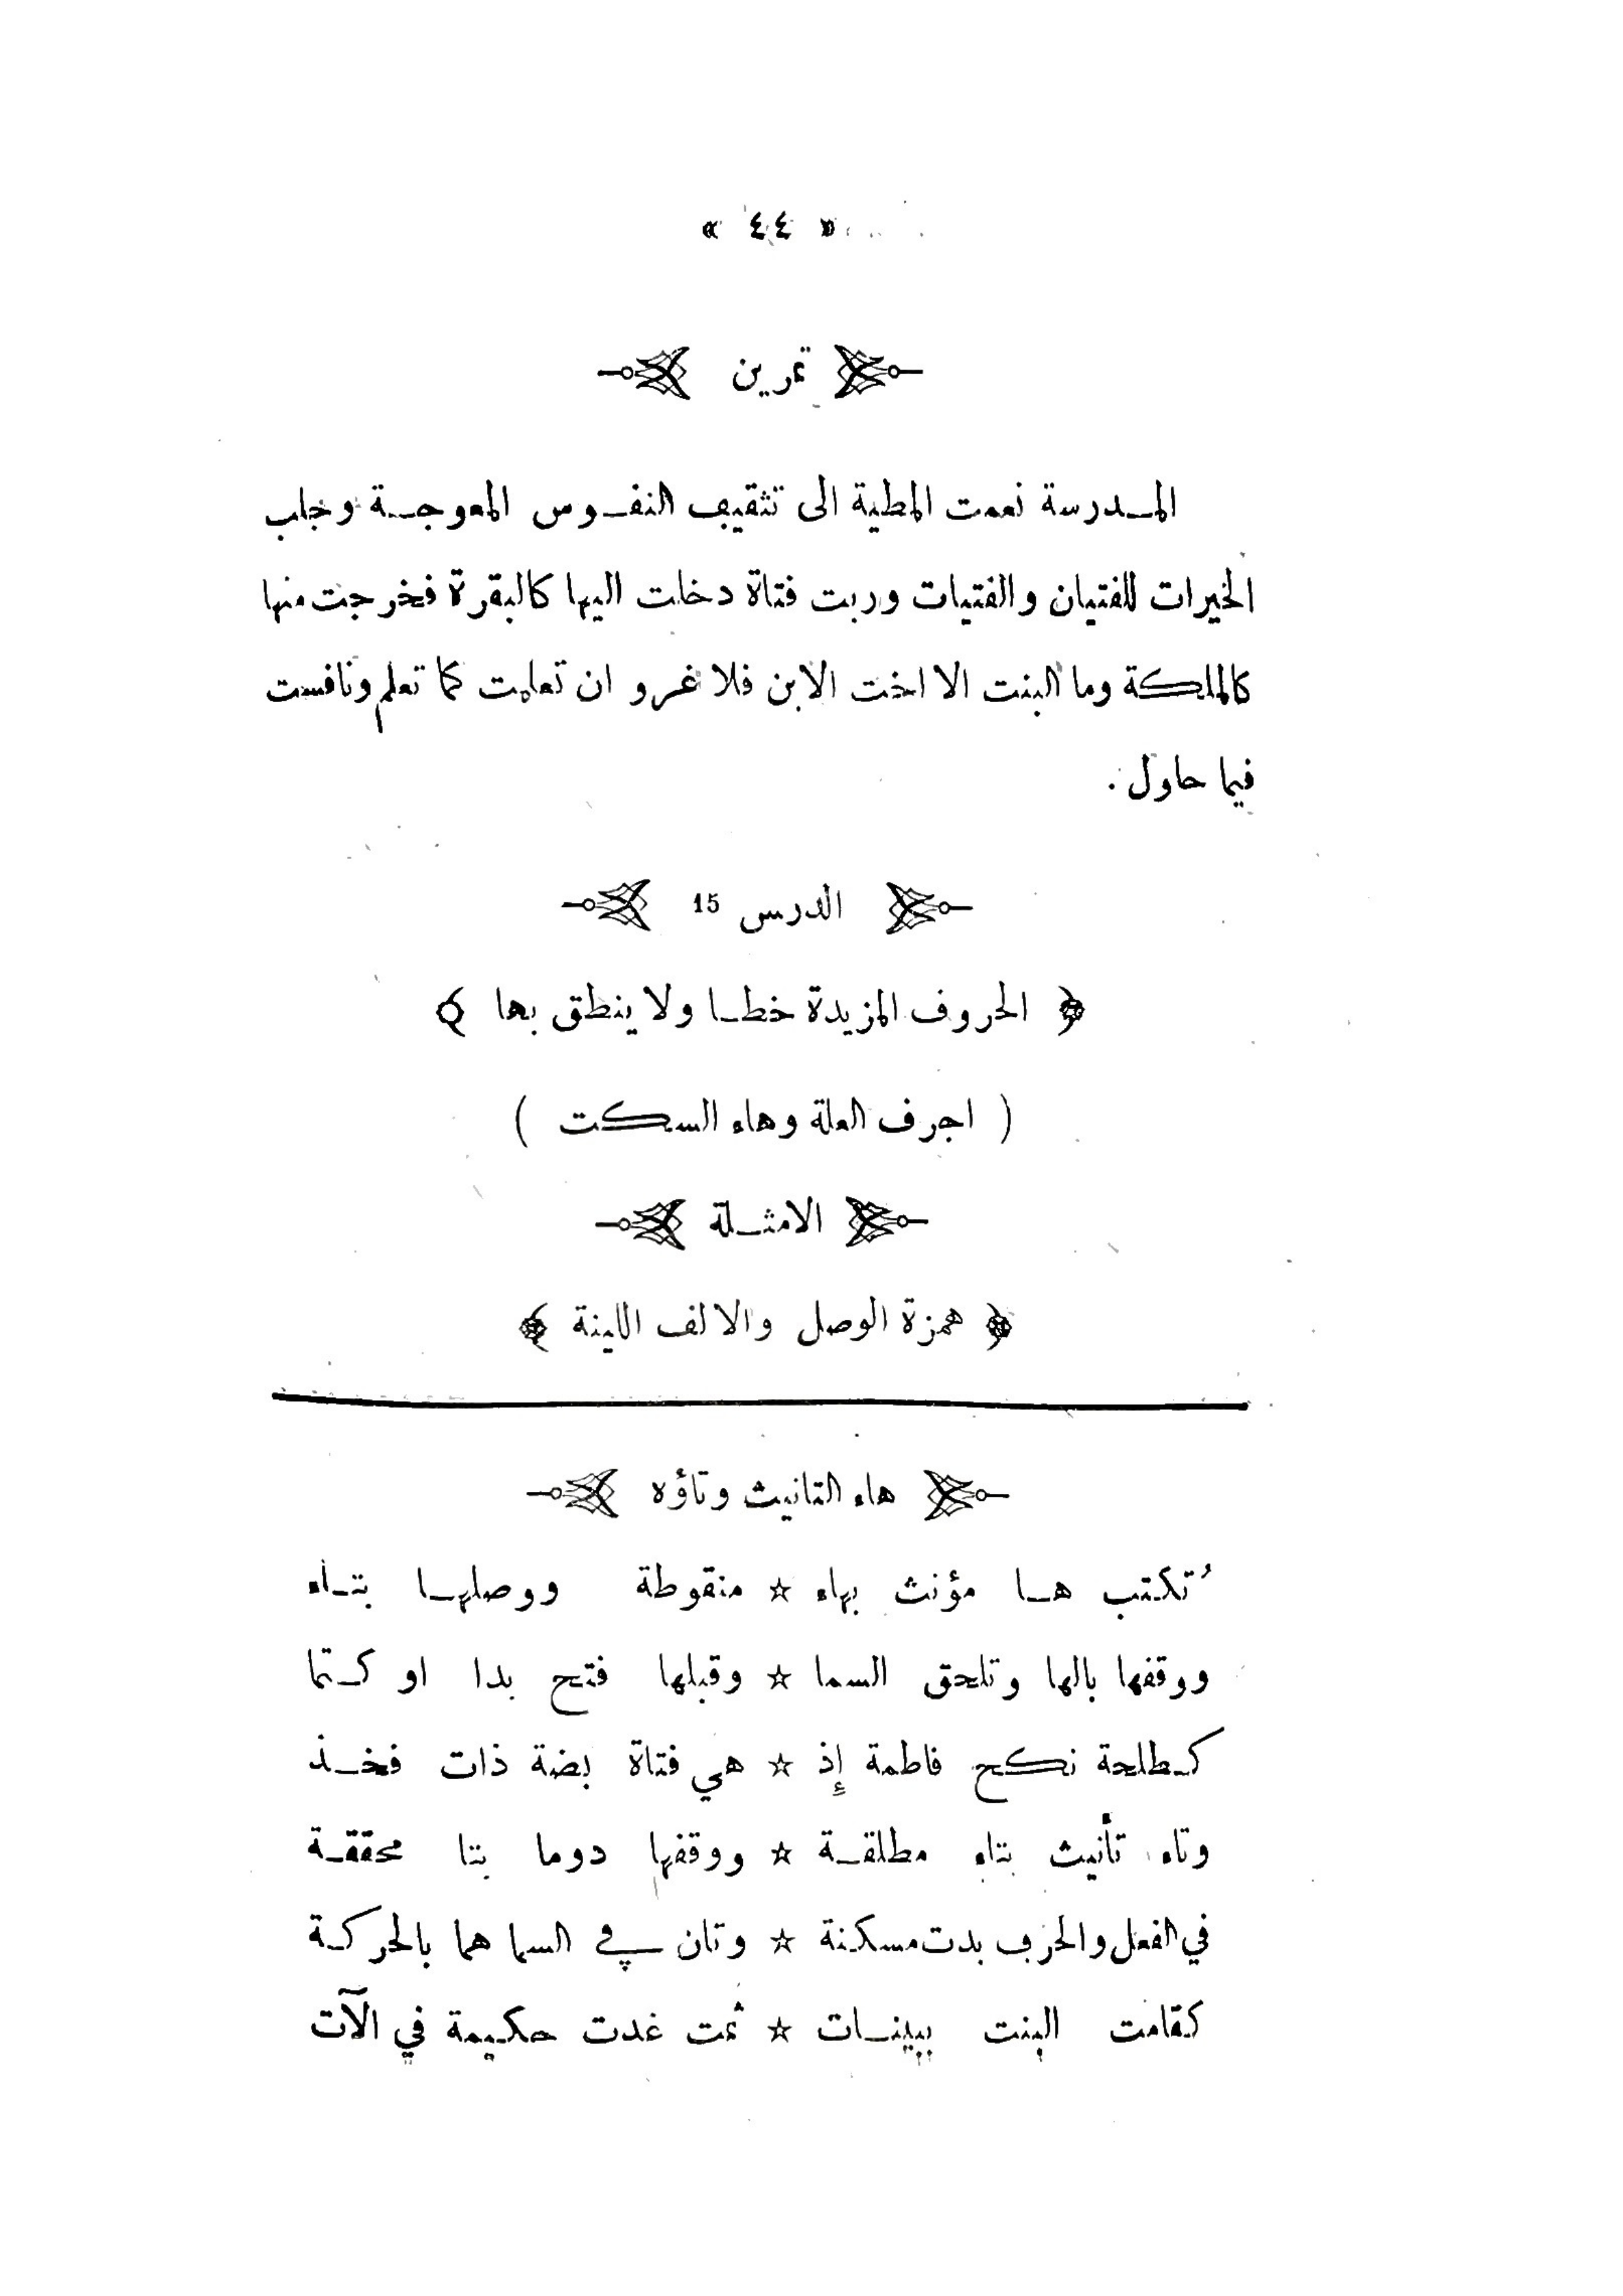 « ٤٤ »
تمرين
المدرسة نعمت المطية الى تثقيف النفوس المعوجة وجلب
الخيرات للفتيان والفتيات وربت فتاة دخلت اليها كالبقرة فخرجت منها
كالملكة وما البنت الا اخت الابن فلا غرو ان تعلمت كما تعلم ونافست
فيما حاول .
الدرس 15
﴿ الحروف المزيدة خطا ولا ينطق بها ﴾
( احرف العلة وهاء السكت )
الامثلة
﴿ همزة الوصل والالف اللينة ﴾
هاء التانيث وتاؤه
تُكتب هــا مؤنث بهاء ☆ منقوطة ووصلهــا بتــاء
ووقفها بالها وتلحق السما ☆ وقبلها فتح بدا او كــتما
كــطلحة نكح فاطمة إذ ☆ هي فتاة بضة ذات فخــذ
وتاء تأنيث بتاء مطلقــة ☆ ووقفها دوما بتا محققــة
في الفعل والحرف بدت مسكنة ☆ وتان في السما هما بالحركــة
كقامت البنت ببينــات ☆ ثمت غدت حكيمة في الآت